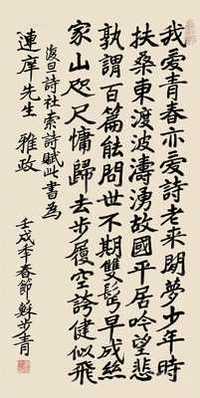 我愛青春亦愛詩老来閒夢少年時
扶桑東渡波濤湧故國平居吟望悲
孰謂百篇能問世不期雙鬢早成絲
家山咫尺慵歸去步履空誇健似飛
復旦詩社索詩賦此書為
連庠先生 雅政
壬戌年春節蘇步青